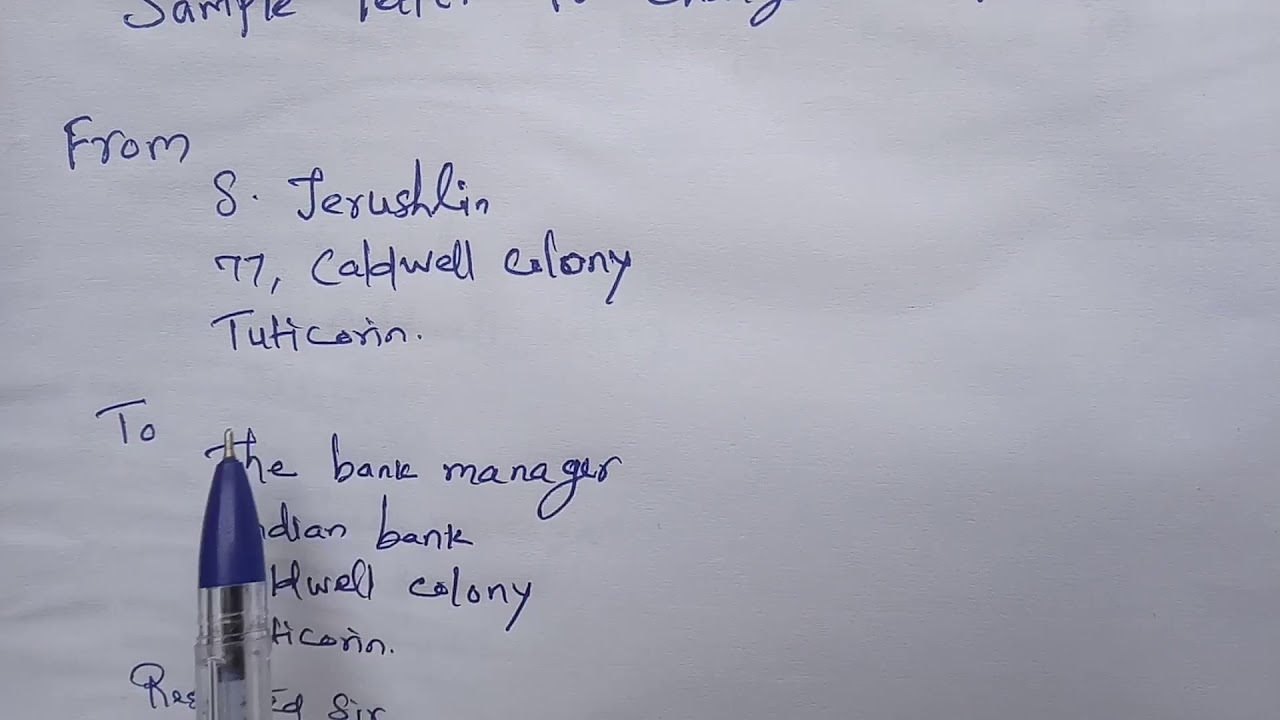 Sample letter to change
From
S. Jerushlin
77, Caldwell colony
Tuticorin.
To
The bank manager
ndian bank
ldwell colony
ticorin.
Res ed Sir